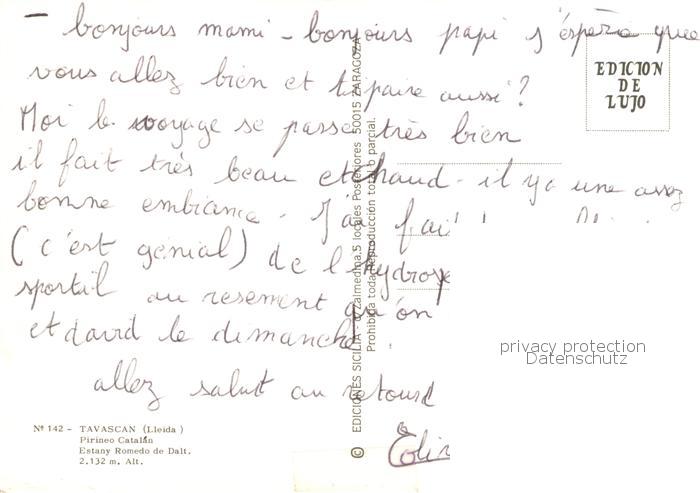 - bonjours mami - bonjours papi j'éspère que
vous allez bien et tipaire aussi?
Moi le voyage se passe très bien
il fait très beau et chaud - il y a une assez
bonne embiance - J'ai fai
(c'est génial) de l'hydrospe
sportil au resement qu'on
et david le dimanche.
allez salut au retourd
EDICION
DE
LUJO
© EDICIONES SICILIA - Zalmedina,5 locales Posteriores 50015 ZARAGOZA
Prohibida toda Reproducción total o parcial.
privacy protection
Datenschutz
Nº 142 - TAVASCAN (Lleida)
Pirineo Catalán
Estany Romedo de Dalt.
2.132 m. Alt.